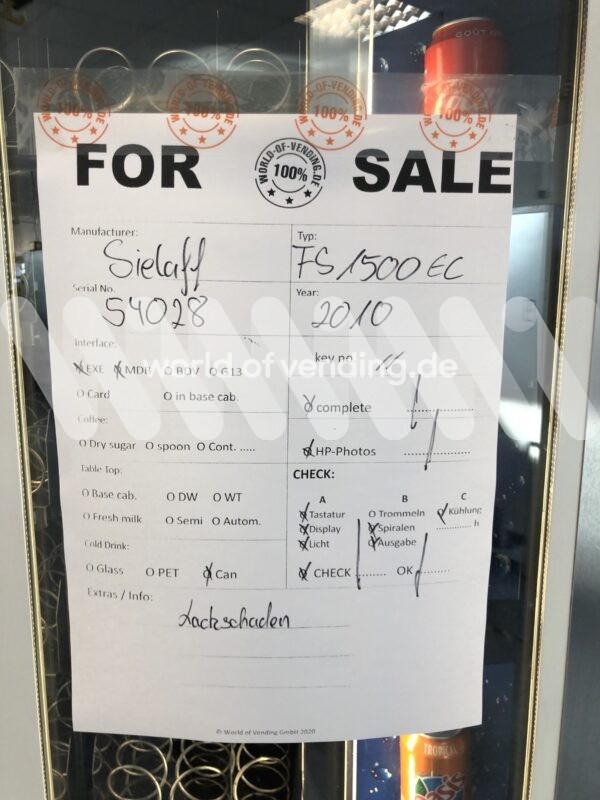 GOÛT
WORLD-OF-VENDING.DE 100%
WORLD-OF-VENDING.DE 100%
WORLD-OF-VENDING.DE 100%
WORLD-OF-VENDING.DE 100%
FOR WORLD-OF-VENDING.DE 100% SALE
Manufacturer: Typ:
Sielaff FS 1500 EC
Serial No. Year:
54028 2010
Interface: key no.
EXE MDB O BDV O G13
world of vending.de
O Card O in base cab. O complete ..............
Coffee:
O Dry sugar O spoon O Cont. ..... O HP-Photos ..............
Table Top: CHECK:
O Base cab. O DW O WT A B C
O Tastatur O Trommeln O Kühlung
O Fresh milk O Semi O Autom. O Display O Spiralen .......... h
O Licht O Ausgabe
Cold Drink:
O Glass O PET O Can O CHECK ......... OK .........
Extras / Info:
Lackschaden
© World of Vending GmbH 2020
TROPICAL